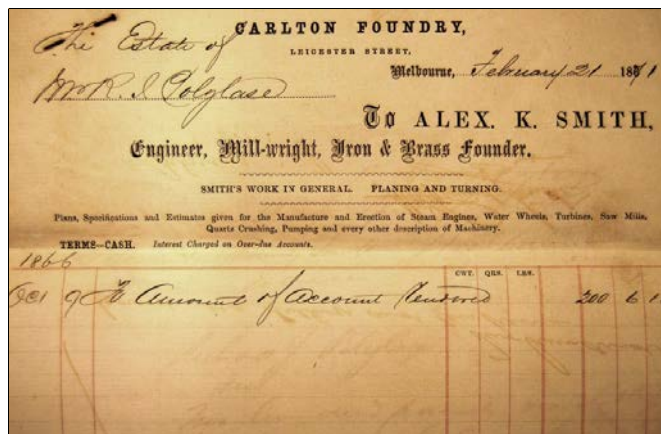 CARLTON FOUNDRY,
The Estate of
LEICESTER STREET,
Melbourne, February 21 1871
Mr R. I Polglase
To ALEX. K. SMITH,
Engineer, Mill-wright, Iron & Brass Founder.
SMITH'S WORK IN GENERAL. PLANING AND TURNING.
Plans, Specifications and Estimates given for the Manufacture and Erection of Steam Engines, Water Wheels, Turbines, Saw Mills,
Quartz Crushing, Pumping and every other description of Machinery.
TERMS—CASH. Interest Charged on Over-due Accounts.
1866
CWT. QRS. LBS.
Oct 9 To Amount of Account Rendered 200 6 1